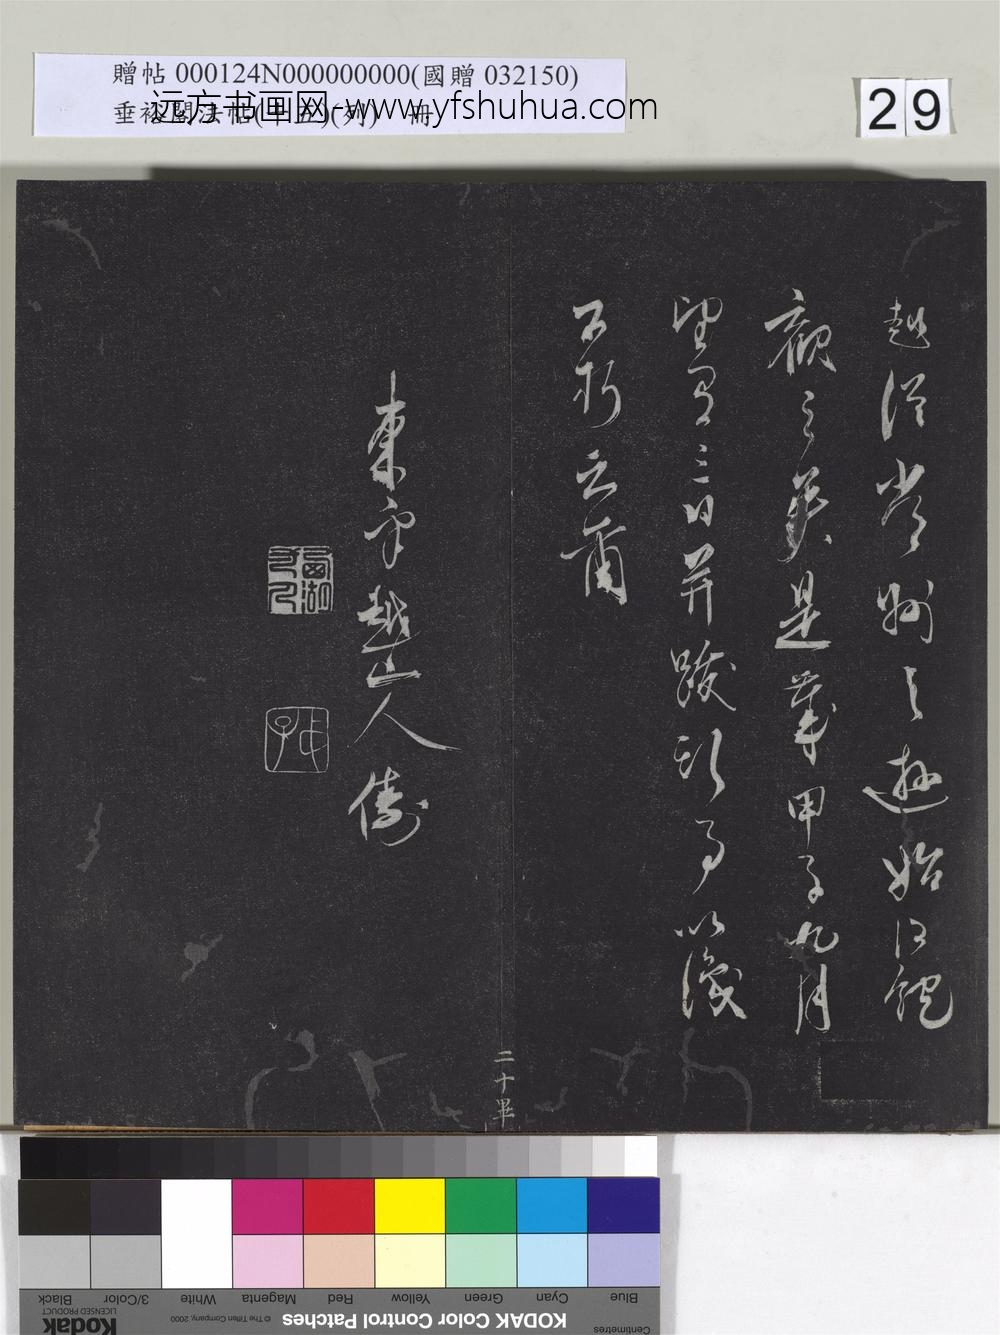 贈帖 000124N000000000(國贈 032150)
垂裕閣法帖()(列) 冊
远方书画网-www.yfshuhua.com
29
趙從常州之遊始得飽
觀之矣是歲甲子九月
望前三日并跋行於以識
不朽云爾
東平越山人儔
二十畢
Blue
Cyan
Green
Yellow
Red
Magenta
White
3/Color
Black
Centimetres
KODAK Color Control Patches
© The Tiffen Company, 2000
Kodak
LICENSED PRODUCT